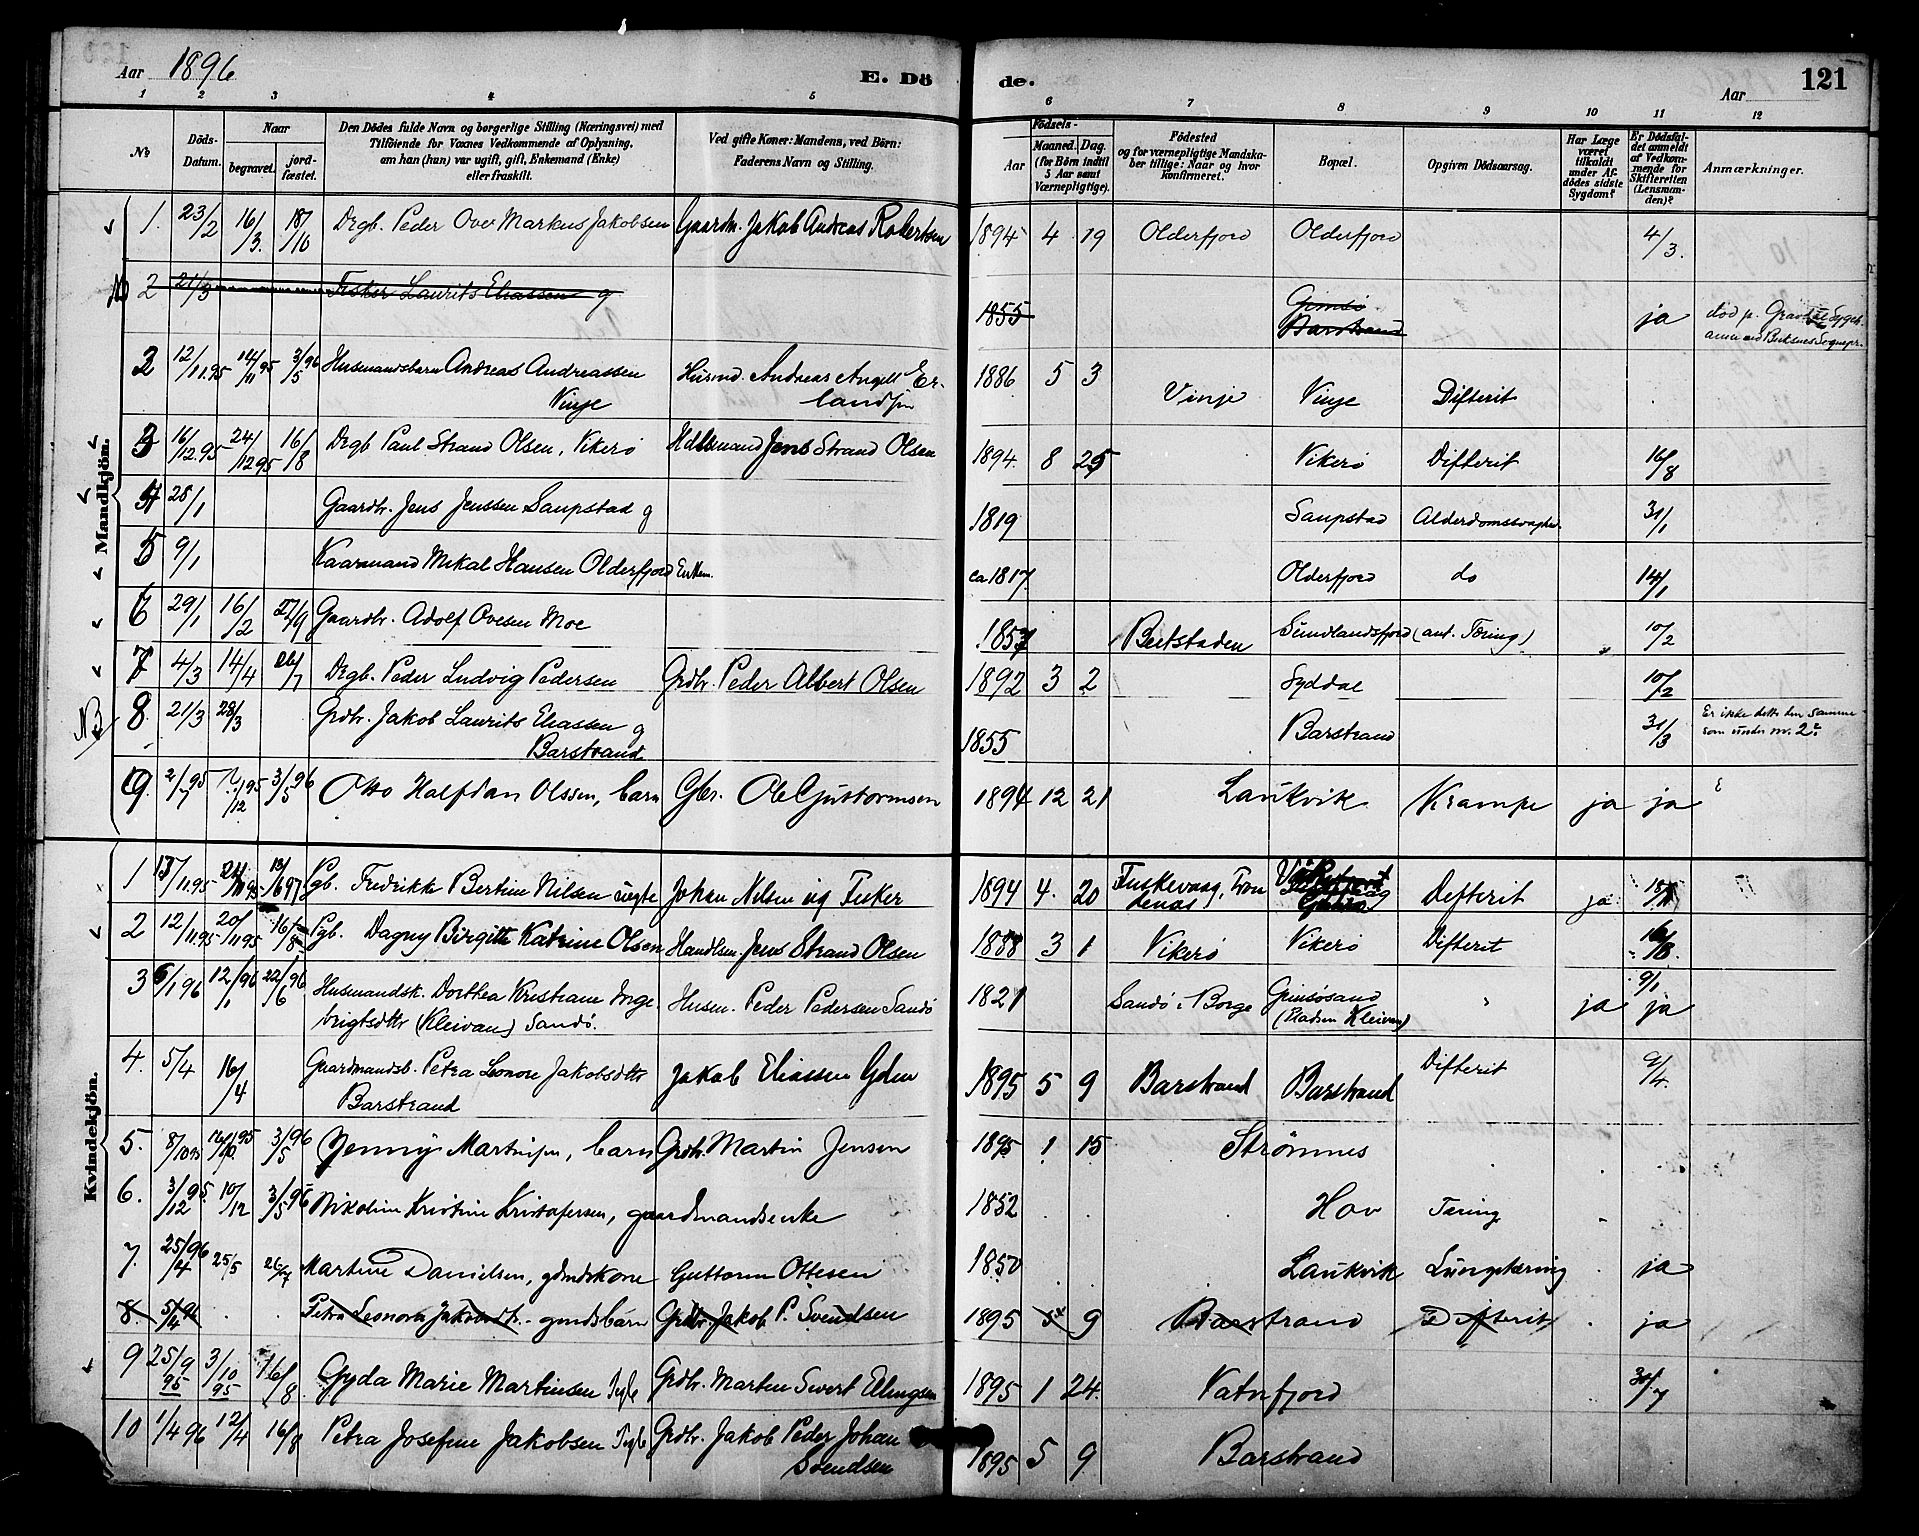 Aar 1896
E. Dö de.
Aar 121
1 2 3 4 5 6 7 8 9 10 11 12
№
Döds-Datum.
Naar
begravet.
jord-fæstet.
Den Dödes fulde Navn og borgerlige Stilling (Næringsvei) med
Tilföiende for Voxnes Vedkommende af Oplysning,
om han (hun) var ugift, gift, Enkemand (Enke)
eller fraskilt.
Ved gifte Koner: Mandens, ved Börn:
Faderens Navn og Stilling.
Födsels-
Aar
Maaned. Dag.
(for Börn indtil
5 Aar samt
Værnepligtige).
Födested
og for værnepligtige Mandska-
ber tillige: Naar og hvor
konfirmeret.
Bopæl.
Opgiven Dödsaarsag.
Har Læge
været
tilkaldt
under Af-
dödes sidste
Sygdom?
Er Dödsfal-
det anmeldt
af Vedkom-
mende for
Skifteretten
(Lensman-
den)?
Anmærkninger.
Mandkjön.
1. 23/2 16/3. 18/10 Drgb. Peder Over Markus Jakobsen Gaardbr. Jakob Andreas Robertsen 1894 4 19 Olderfjord Olderfjord 4/3.
2 21/3 Fisker Laurits Eliassen g 1855 Gimsö Barstrand ja död p. Gravdal Sygeh.
2 12/11.95 14/11 95 3/5 96 Husmandsbarn Andreas Andreassen Husmd. Andreas Angell Er- 1886 5 3 Vinje Vinje Difterit
Vinje landsen
3 16/12.95 24/12 95 16/8 Drgb Paul Strand Olsen, Vikerö Jens Strand Olsen 1894. 8 25 Vikerö Difterit 16/8
4 28/1 Gaardbr. Jens Jenssen Saupstad g 1819 Saupstad Alderdomssvaghed. 31/1
5 9/1 Kaarmand Mikal Hansen Olderfjord Enkem. ca 1817 Olderfjord do 14/1
6 29/1 16/2 27/9 Gaardbr. Adolf Ovesen Moe 1857 Beitstaden Sundlandsfjord (ant. Tæring) " 10/2
7 4/3 14/4 26/7 Drgb. Peder Ludvig Pedersen Grdbr. Peder Albert Olsen 1892 3 2 Syddal 10/2
NB 8. 21/3 28/3 Grdbr. Jakob Laurits Eliassen g 1855 Barstrand 31/3 Er ikke dette den samme
Barstrand som under nr. 2?
9. 2/7 95 3/5 96 Otto Halfdan Olssen, barn Gbr. Ole Guttormsen 1894 12 21 Laukvik Krampe ja ja
Kvindekjön.
1 13/11.95 Pgb. Fredrikke Bertine Nilsen ugifte Johan Nilsen ug Fisker 1894 4. 20 Fuskevaag, Tron Difterit ja
denæs
2 12/11.95 20/11 95 16/8 Pgb. Dagny Birgitte Katrine Olsen Handlsm. Jens Strand Olsen 1888 3 1 Vikerö Vikerö Difterit 16/8.
3 6/1 96 12/1 96 22/6 96 Husmandsk. Dorthea Kristiane Inge Husm. Peder Pedersen Sandö 1821 Sandö i Borge Gimsösand " ja 9/1 ja
brigtsdtr (Kleivan) Sandö. (Pladsen Kleivan)
4. 5/4 16/4 Gaardmandsb. Petra Leonore Jakobsdtr Jakob Eliassen 1895 5 9 Barstrand Barstrand Difterit 9/4.
Barstrand
5. 8/10 95 3/5 96 Jenny Martinsen, barn Grdbr. Martin Jensen 1895 1 15 Strömnes
6. 3/12 95. 10/12 3/5 96 Nikoline Kristine Kristofersen, gaardmandsenke 1852 Hov Tæring
7. 25/4 96 25/5 26/7 Martine Danielsen, gdmdskone Guttorm Ottesen 1850 Laukvik Lungetæring ja
8. 5/4 96 Petra Leonora Jakobsdtr. - gmdsbarn Grdbr. Jakob P. Svendsen 1895 5 9 Barstrand Difterit ja
9 25/9 95 3/10 95 16/8 Gyda Marie Martinsen Grdbr. Martin Sivert Ellingsen 1895 1 24. Vatnfjord 30/7
10 1/4 96 12/4 16/8 Petra Josefine Jakobsen Grdbr. Jakob Peder Johan 1895 5 9 Barstrand
Svendsen